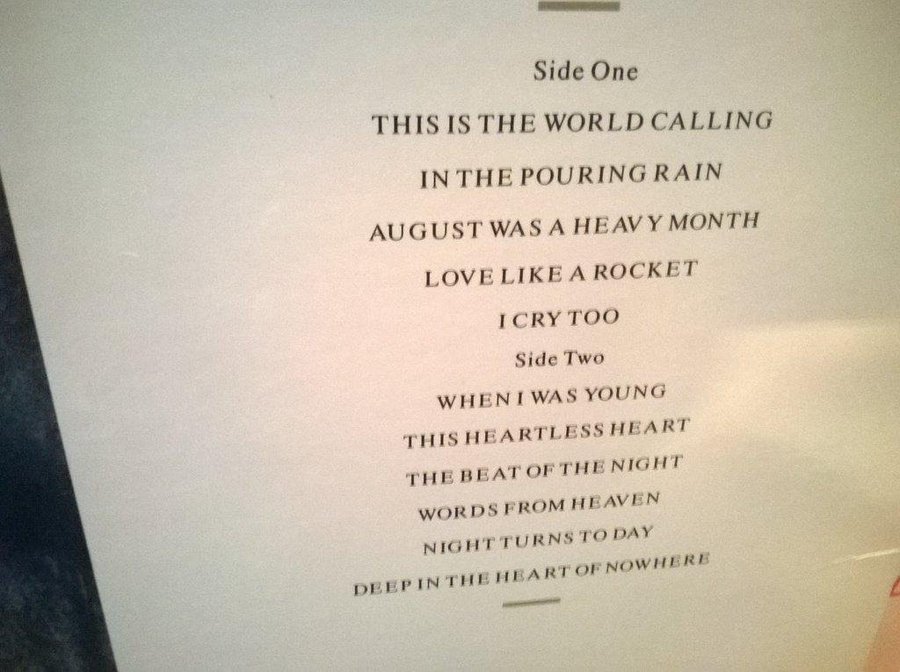 Side One
THIS IS THE WORLD CALLING
IN THE POURING RAIN
AUGUST WAS A HEAVY MONTH
LOVE LIKE A ROCKET
I CRY TOO
Side Two
WHEN I WAS YOUNG
THIS HEARTLESS HEART
THE BEAT OF THE NIGHT
WORDS FROM HEAVEN
NIGHT TURNS TO DAY
DEEP IN THE HEART OF NOWHERE